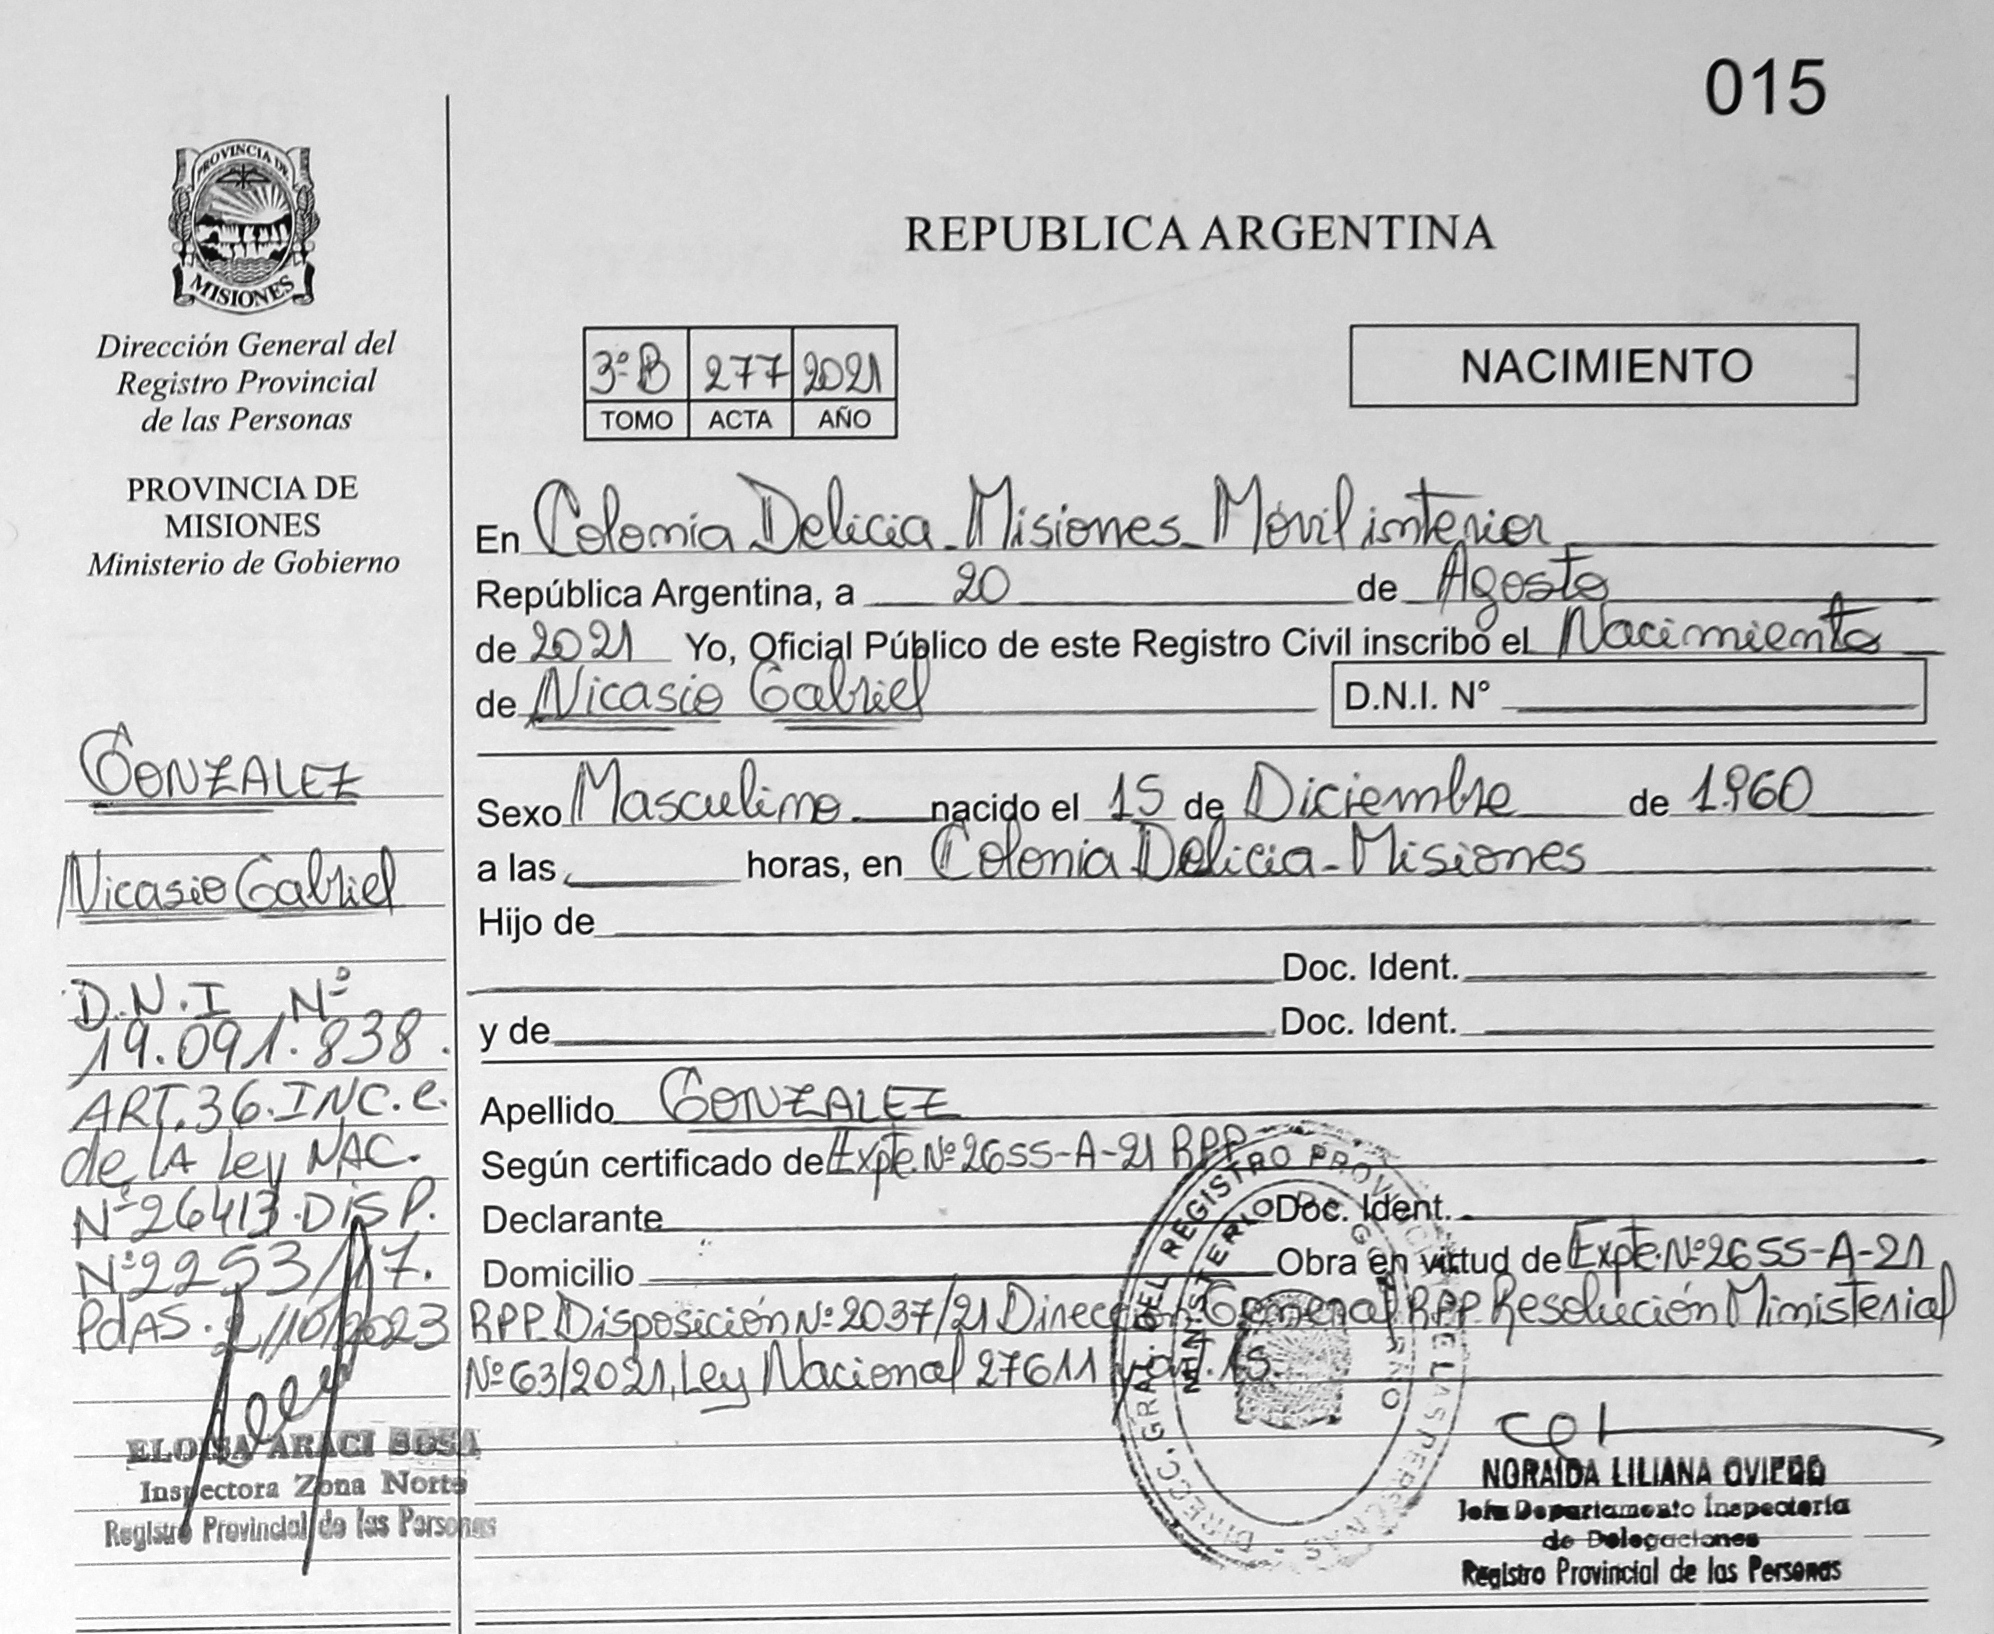 015
PROVINCIA DE
MISIONES
Dirección General del
Registro Provincial
de las Personas
PROVINCIA DE
MISIONES
Ministerio de Gobierno
GONZALEZ
Nicasio Gabriel
D.N.I Nº
19.091.838.
ART.36.INC.e.
de LA Ley NAC.
Nº26413.DISP.
Nº2253/17.
PdAS. 2/10/2023
ELOISA ARACI SOSA
Inspectora Zona Norte
Registro Provincial de las Personas
REPUBLICA ARGENTINA
3ºB 277 2021
TOMO ACTA AÑO
NACIMIENTO
En Colonia Delicia - Misiones - Móvil interior
República Argentina, a 20 de Agosto
de 2021 Yo, Oficial Público de este Registro Civil inscribo el Nacimiento
de Nicasio Gabriel D.N.I. N°
Sexo Masculino nacido el 15 de Diciembre de 1.960
a las horas, en Colonia Delicia - Misiones
Hijo de
Doc. Ident.
y de Doc. Ident.
Apellido GONZALEZ
Según certificado de Expte. Nº 2655-A-21 RPP
Declarante Doc. Ident.
Domicilio Obra en virtud de Expte. Nº 2655-A-21
RPP. Disposición Nº 2037/21 Dirección General RPP. Resolución Ministerial
Nº 63/2021, Ley Nacional 27611 y art. 15.
DIRECC. GRAL. DEL REGISTRO PROVINCIAL DE LAS PERSONAS
MINISTERIO DE GOBIERNO
NORAIDA LILIANA OVIEDO
Jefa Departamento Inspectoría
de Delegaciones
Registro Provincial de las Personas